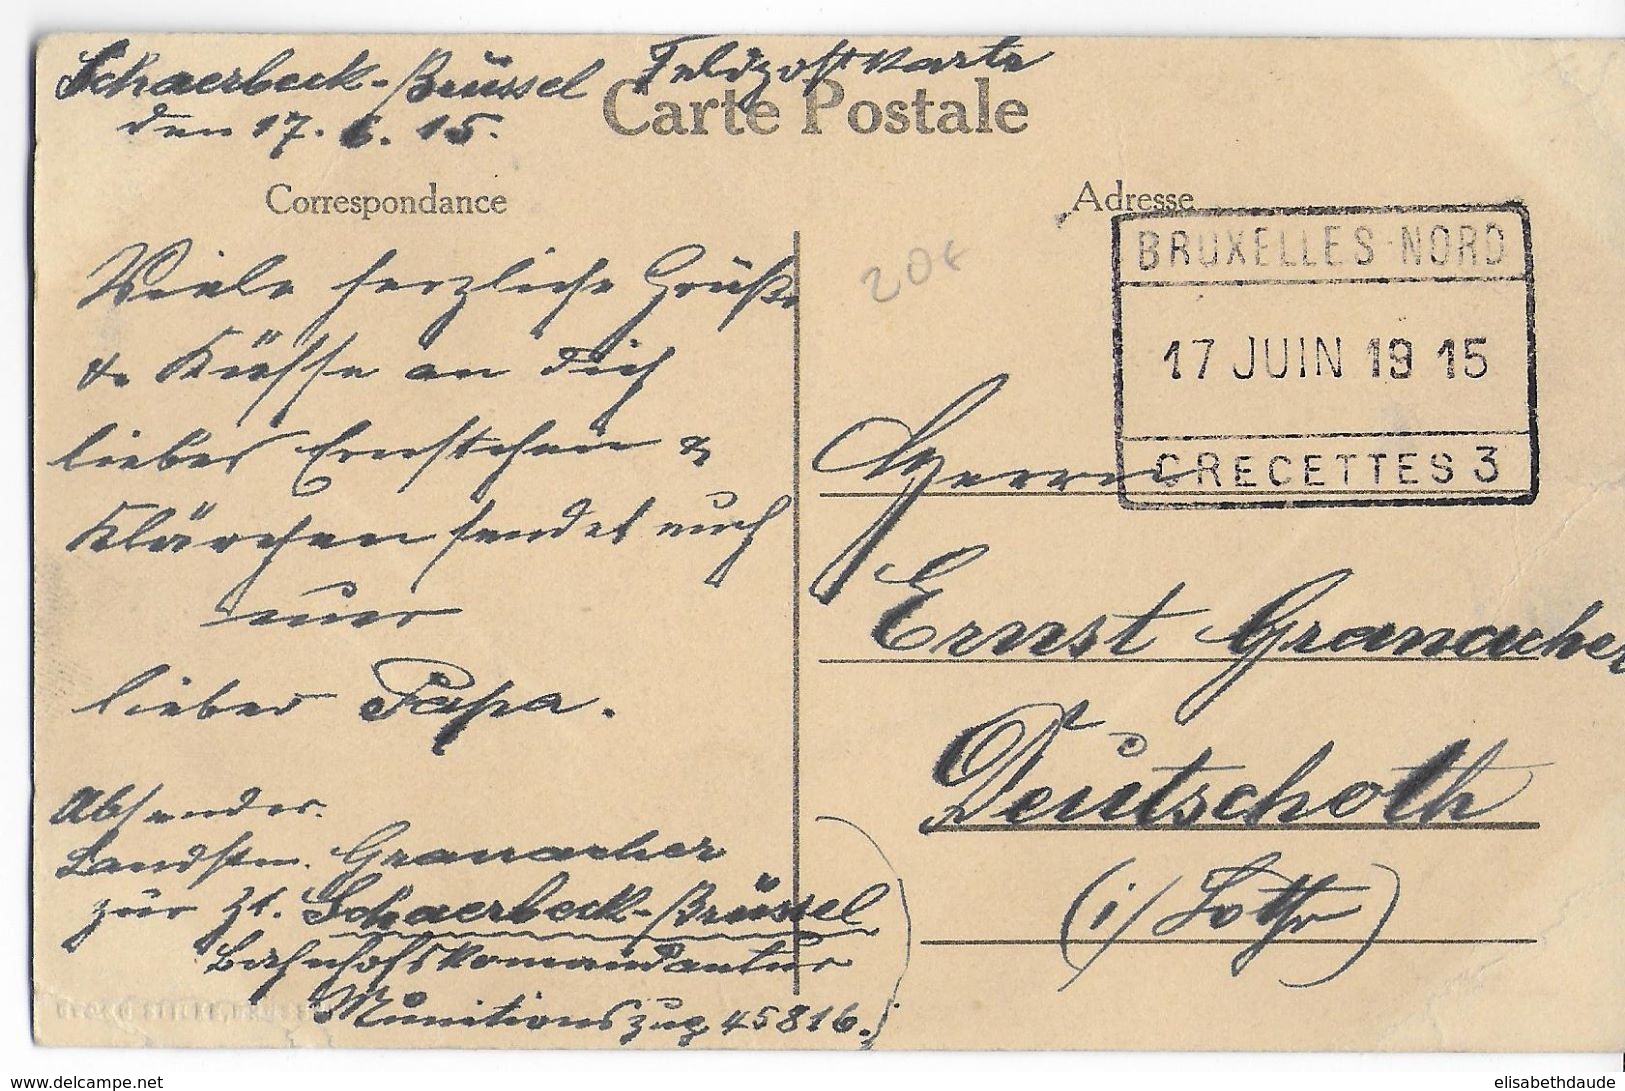 Schaerbeck-Brüssel Feldpostkarte
den 17. 6. 15.
Carte Postale
Correspondance
Adresse
Viele herzliche Grüße
& Küsse an Dich
liebes Ernstchen &
Klärchen sendet euch
euer
lieber Papa.
Absender.
Landstm. Granacher
zur Zt. Schaerbeck-Brüssel
Bahnhofskommandantur
Munitionszug 45816.
20€
BRUXELLES-NORD
17 JUIN 19 15
C RECETTES 3
Herrn
Ernst Granacher
Deutschoth
(i/Lothr)
delcampe.net
elisabethdaude